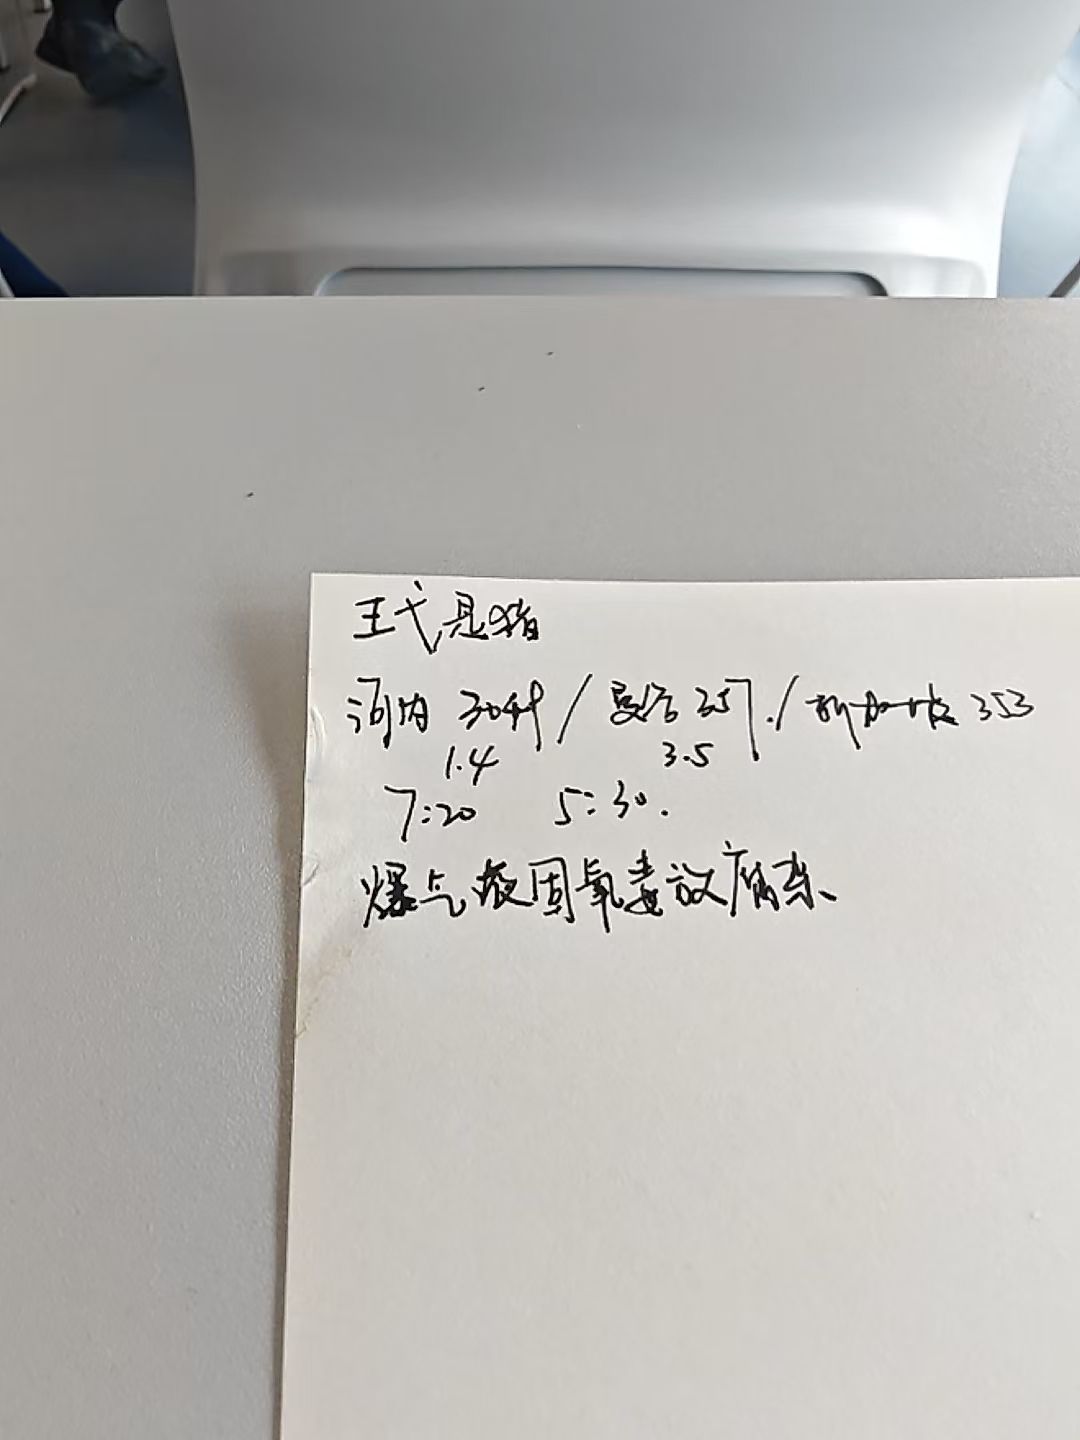 王弋是猪
河内 30 / 曼谷 357. / 新加坡 353
1.4 3.5
7:20 5:30.
爆气液固氧毒放腐杂